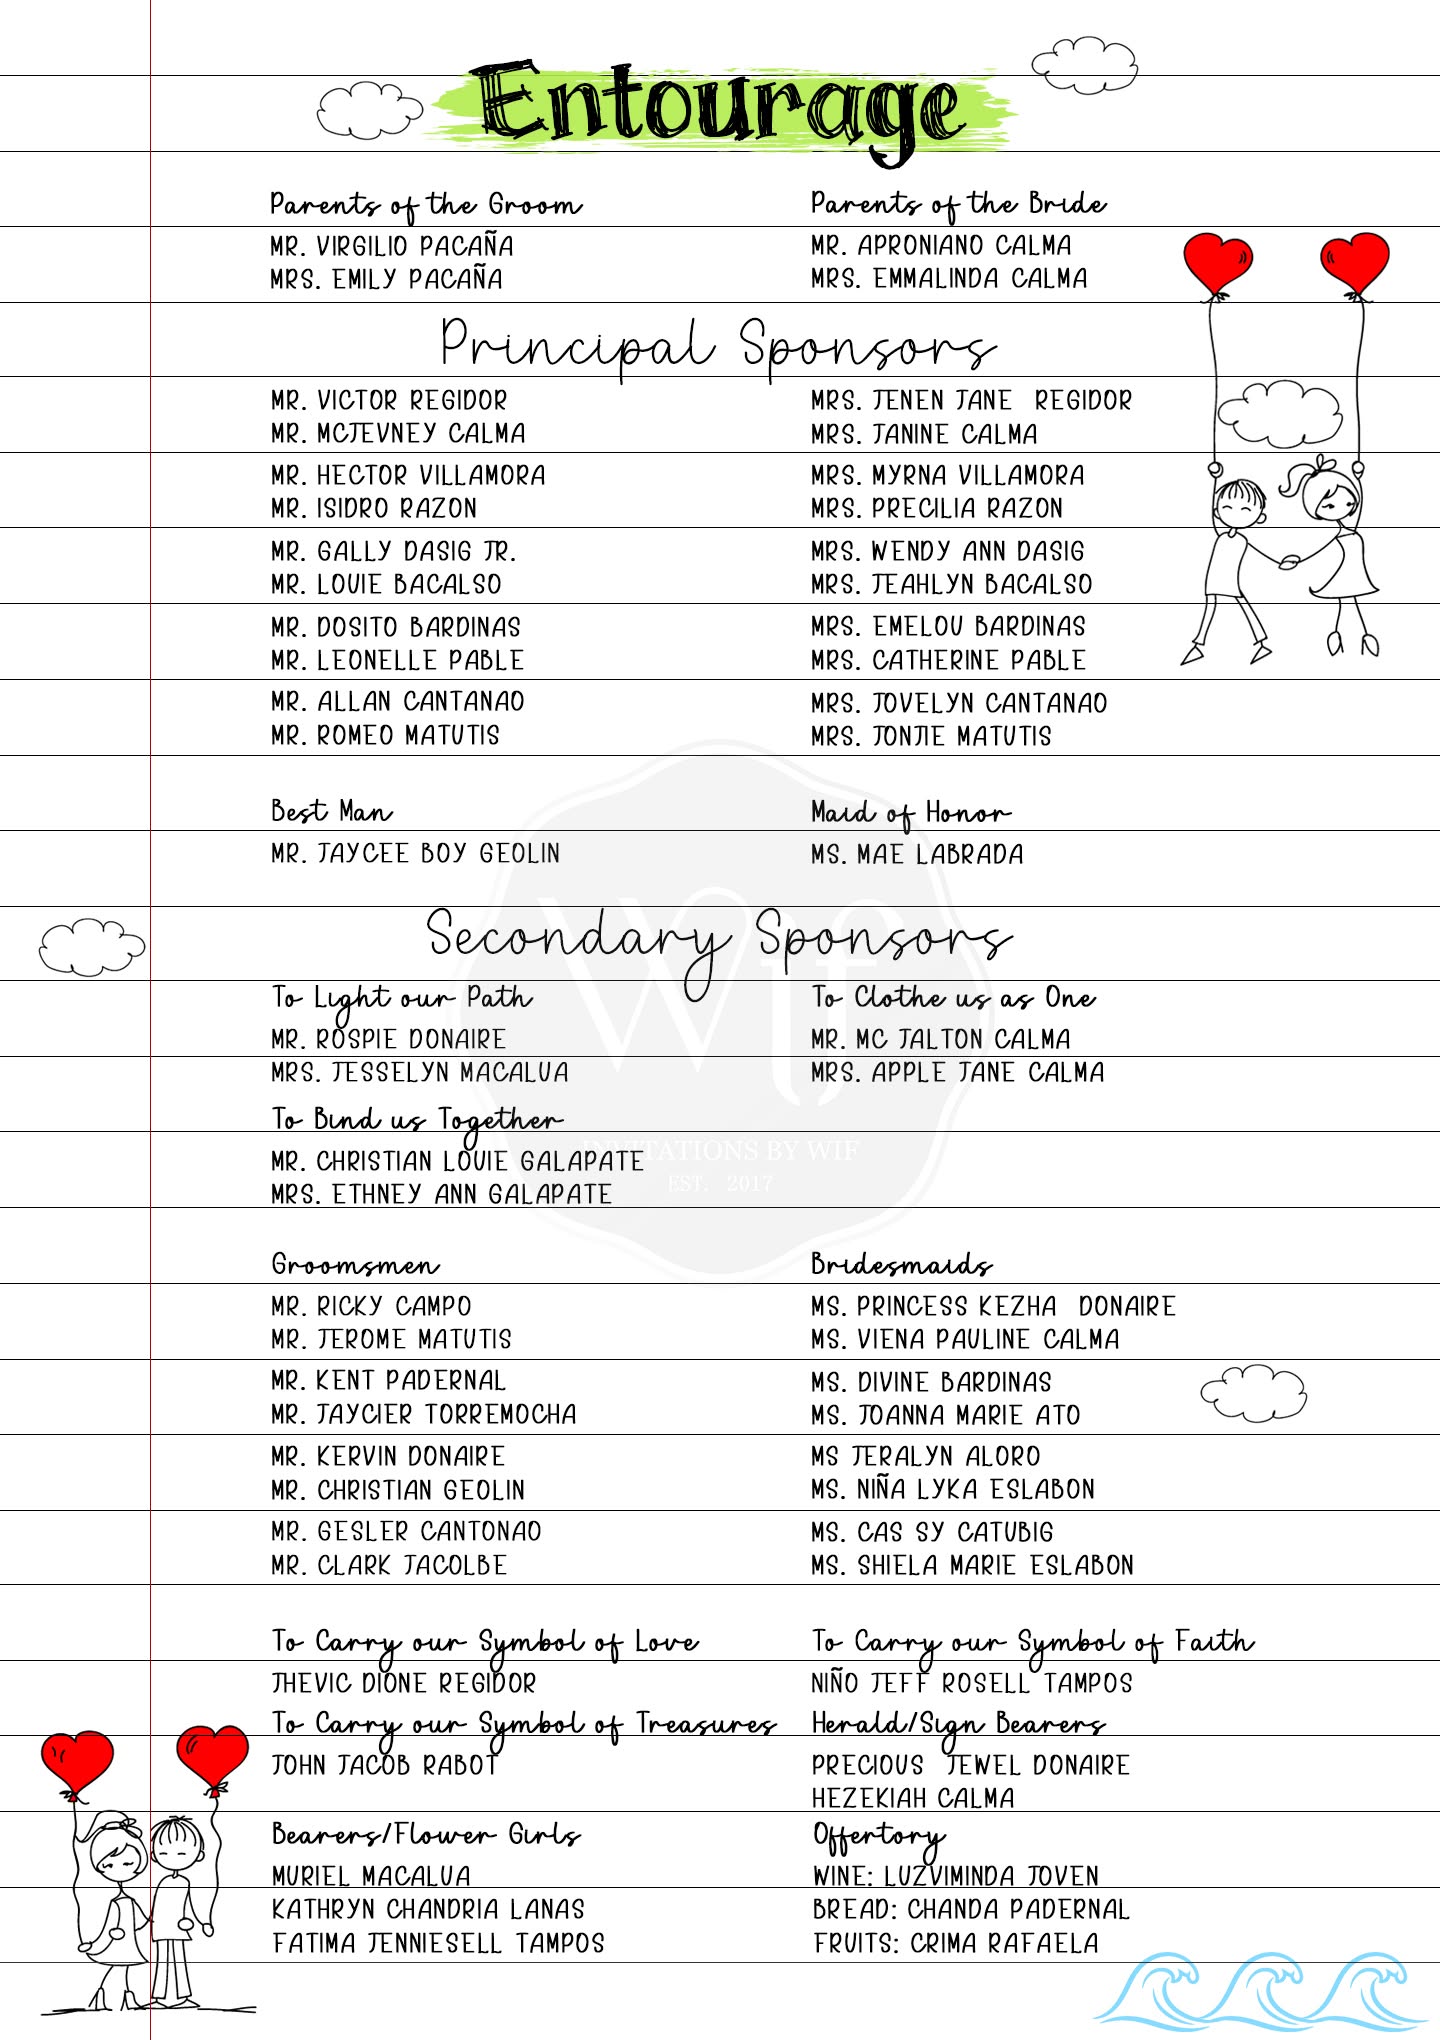 Entourage
Parents of the Groom
MR. VIRGILIO PACAÑA
MRS. EMILY PACAÑA
Parents of the Bride
MR. APRONIANO CALMA
MRS. EMMALINDA CALMA
Principal Sponsors
MR. VICTOR REGIDOR
MR. MCJEVNEY CALMA
MRS. JENEN JANE REGIDOR
MRS. JANINE CALMA
MR. HECTOR VILLAMORA
MR. ISIDRO RAZON
MRS. MYRNA VILLAMORA
MRS. PRECILIA RAZON
MR. GALLY DASIG JR.
MR. LOUIE BACALSO
MRS. WENDY ANN DASIG
MRS. JEAHLYN BACALSO
MR. DOSITO BARDINAS
MR. LEONELLE PABLE
MRS. EMELOU BARDINAS
MRS. CATHERINE PABLE
MR. ALLAN CANTANAO
MR. ROMEO MATUTIS
MRS. JOVELYN CANTANAO
MRS. JONJIE MATUTIS
Best Man
MR. JAYCEE BOY GEOLIN
Maid of Honor
MS. MAE LABRADA
Secondary Sponsors
To Light our Path
MR. ROSPIE DONAIRE
MRS. JESSELYN MACALUA
To Clothe us as One
MR. MC JALTON CALMA
MRS. APPLE JANE CALMA
To Bind us Together
MR. CHRISTIAN LOUIE GALAPATE
MRS. ETHNEY ANN GALAPATE
Wif
INVITATIONS BY WIF
EST. 2017
Groomsmen
MR. RICKY CAMPO
MR. JEROME MATUTIS
MR. KENT PADERNAL
MR. JAYCIER TORREMOCHA
MR. KERVIN DONAIRE
MR. CHRISTIAN GEOLIN
MR. GESLER CANTONAO
MR. CLARK JACOLBE
Bridesmaids
MS. PRINCESS KEZHA DONAIRE
MS. VIENA PAULINE CALMA
MS. DIVINE BARDINAS
MS. JOANNA MARIE ATO
MS JERALYN ALORO
MS. NIÑA LYKA ESLABON
MS. CAS SY CATUBIG
MS. SHIELA MARIE ESLABON
To Carry our Symbol of Love
JHEVIC DIONE REGIDOR
To Carry our Symbol of Faith
NIÑO JEFF ROSELL TAMPOS
To Carry our Symbol of Treasures
JOHN JACOB RABOT
Herald/Sign Bearers
PRECIOUS JEWEL DONAIRE
HEZEKIAH CALMA
Bearers/Flower Girls
MURIEL MACALUA
KATHRYN CHANDRIA LANAS
FATIMA JENNIESELL TAMPOS
Offertory
WINE: LUZVIMINDA JOVEN
BREAD: CHANDA PADERNAL
FRUITS: CRIMA RAFAELA